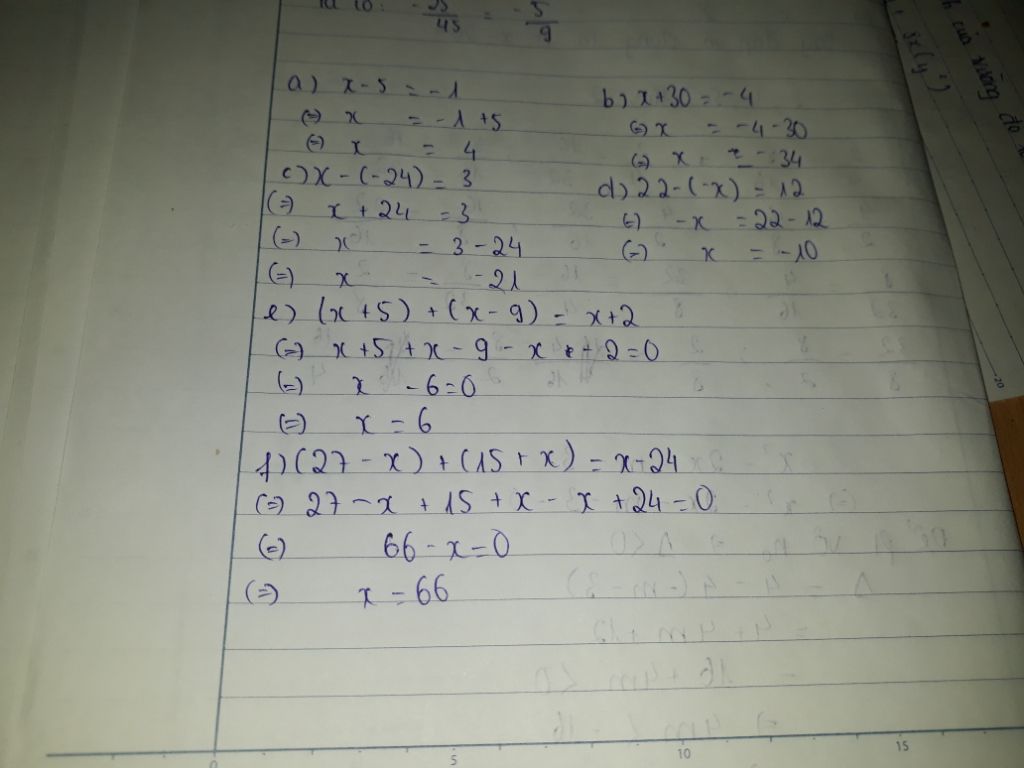 -25/45 = -5/9
a) x - 5 = -1
(=) x = -1 + 5
(=) x = 4
b) x + 30 = -4
(=) x = -4 - 30
(=) x = -34
c) x - (-24) = 3
(=) x + 24 = 3
(=) x = 3 - 24
(=) x = -21
d) 22 - (-x) = 12
(=) -x = 22 - 12
(=) x = -10
e) (x + 5) + (x - 9) = x + 2
(=) x + 5 + x - 9 - x - 2 = 0
(=) x - 6 = 0
(=) x = 6
f) (27 - x) + (15 + x) = x - 24
(=) 27 - x + 15 + x - x + 24 = 0
(=) 66 - x = 0
(=) x = 66
0 5 10 15
20
của riêng